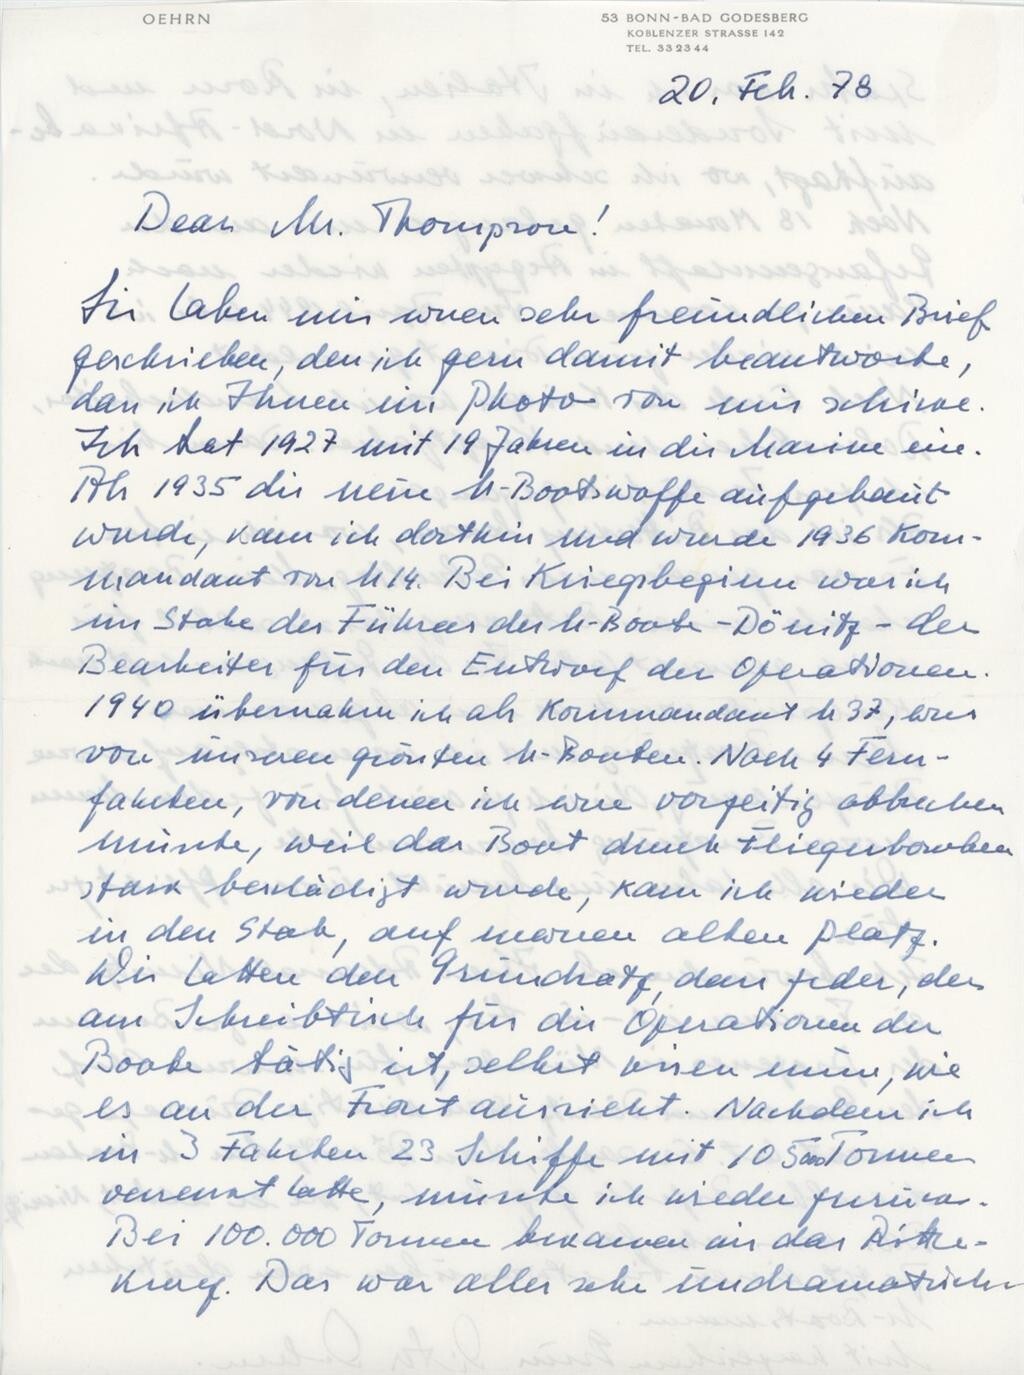 OEHRN
53 BONN-BAD GODESBERG
KOBLENZER STRASSE 142
TEL. 332344
20. Feb. 78
Dear Mr. Thompson!
Sie haben mir einen sehr freundlichen Brief
geschrieben, den ich gern damit beantworte,
dass ich Ihnen ein Photo von mir schicke.
Ich trat 1927 mit 19 Jahren in die Marine ein.
Als 1935 die neue U-Bootswaffe aufgebaut
wurde, kam ich dorthin und wurde 1936 Kom-
mandant von U 14. Bei Kriegsbeginn war ich
im Stabe des Führers der U-Boote - Dönitz - der
Bearbeiter für den Entwurf der Operationen.
1940 übernahm ich als Kommandant U 37, eins
von unseren grössten U-Booten. Nach 4 Fern-
fahrten, von denen ich eine vorzeitig abbrechen
musste, weil das Boot durch Fliegerbomben
stark beschädigt wurde, kam ich wieder
in den Stab, auf meinen alten Platz.
Wir hatten den Grundsatz, dass jeder, der
am Schreibtisch für die Operationen der
Boote tätig ist, selbst wissen muss, wie
es an der Front aussieht. Nachdem ich
in 3 Fahrten 23 Schiffe mit Tonnen
versenkt hatte, musste ich wieder zurück.
Bei 100.000 Tonnen bekamen wir das Ritter-
kreuz. Das war alles sehr undramatisch